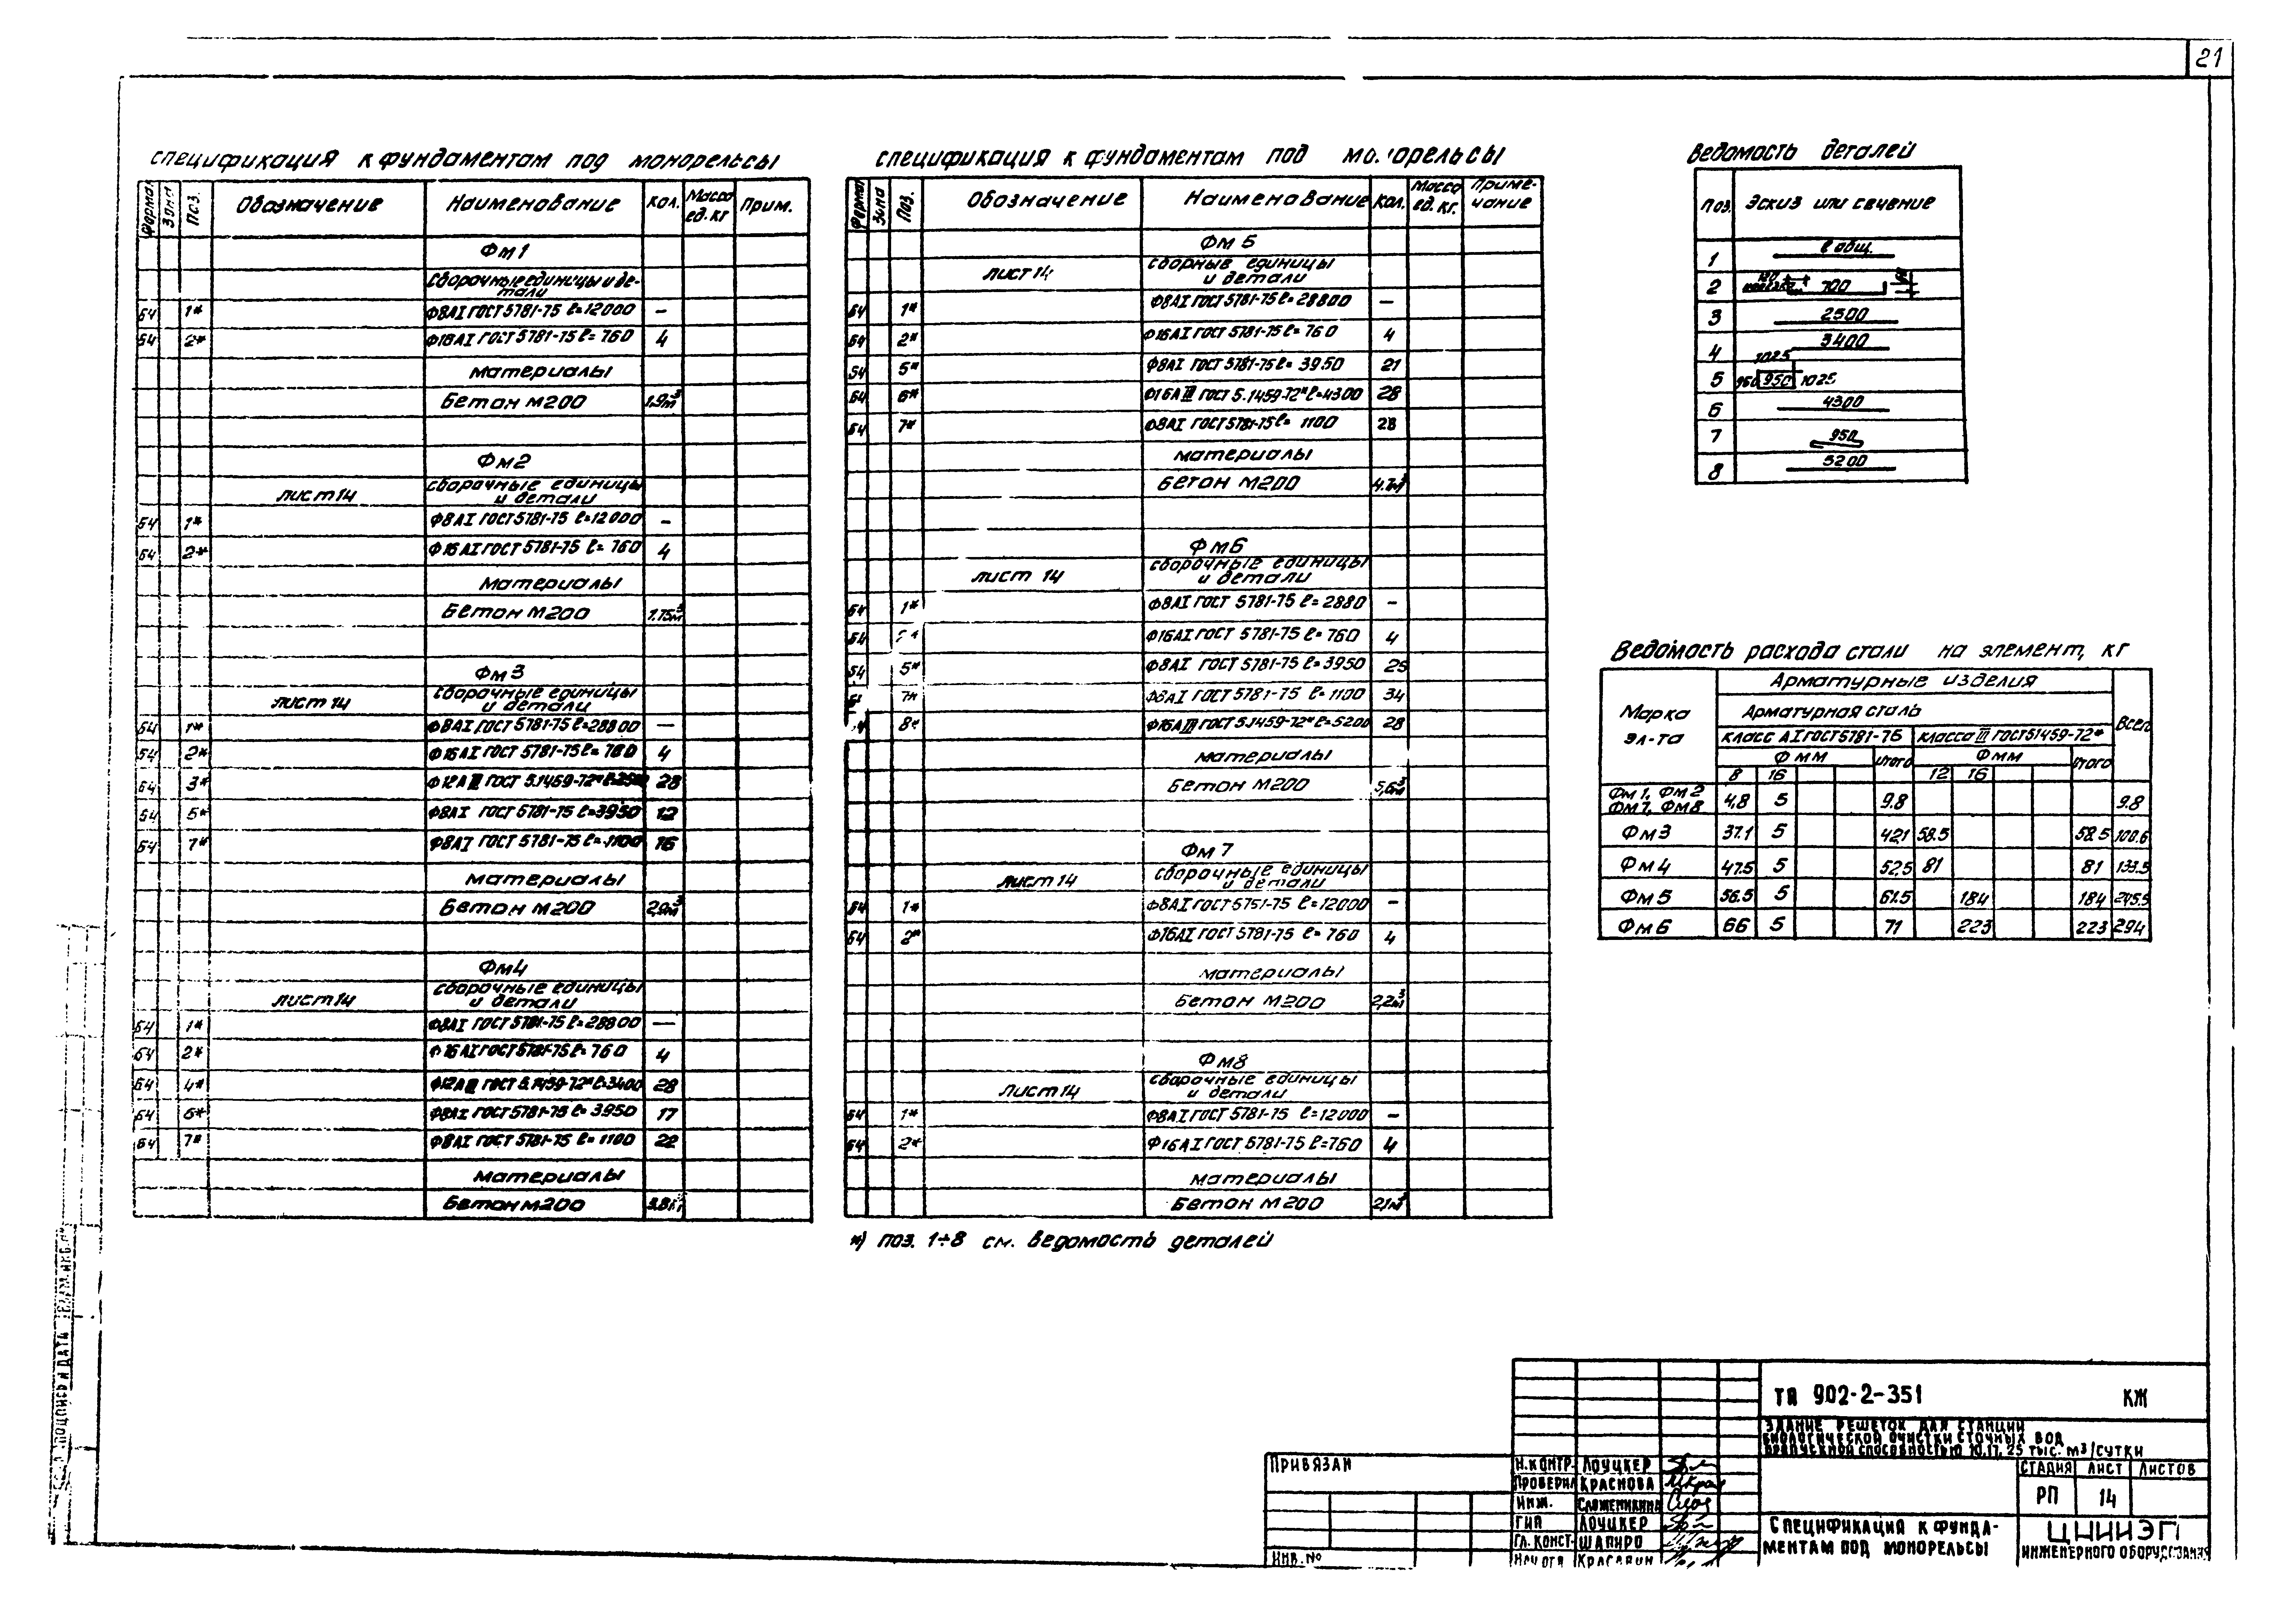 21
спецификация к фундаментам под монорельсы
Формат Зона Поз. Обозначение Наименование Кол. Масса ед. кг Прим.
Фм1
Сборочные единицы и детали
Б4 1* Ф8АI ГОСТ 5781-75 ℓ=12000 —
Б4 2* Ф16АI ГОСТ 5781-75 ℓ=760 4
материалы
Бетон М200 1.9м³
Фм2
лист 14 сборочные единицы и детали
Б4 1* Ф8АI ГОСТ 5781-75 ℓ=12000 —
Б4 2* Ф16АI ГОСТ 5781-75 ℓ=760 4
материалы
Бетон М200 1.75м³
Фм3
лист 14 сборочные единицы и детали
Б4 1* Ф8АI ГОСТ 5781-75 ℓ=28800 —
Б4 2* Ф16АI ГОСТ 5781-75 ℓ=760 4
Б4 3* Ф12АIII ГОСТ 5.1459-72* 28
Б4 5* Ф8АI ГОСТ 5781-75 ℓ=3950 12
Б4 7* Ф8АI ГОСТ 5781-75 ℓ=1100 16
материалы
Бетон М200 2,9м³
Фм4
лист 14 сборочные единицы и детали
Б4 1* Ф8АI ГОСТ 5781-75 ℓ=28800 —
Б4 2* Ф16АI ГОСТ 5781-75 ℓ=760 4
Б4 4* Ф12АIII ГОСТ 5.1459-72* ℓ=3400 28
Б4 Ф8АI ГОСТ 5781-75 ℓ=3950 17
Б4 7* Ф8АI ГОСТ 5781-75 ℓ=1100 22
материалы
Бетон М200 3.8м³
спецификация к фундаментам под монорельсы
Формат Зона Поз. Обозначение Наименование Кол. Масса ед. кг. Примечание
Фм 5
лист 14 сборные единицы и детали
Б4 1* Ф8АI ГОСТ 5781-75 ℓ=28800 —
Б4 2* Ф16АI ГОСТ 5781-75 ℓ=760 4
Б4 5* Ф8АI ГОСТ 5781-75 ℓ=3950 21
Б4 6* Ф16АIII ГОСТ 5.1459-72* ℓ=4300 28
Б4 7* Ф8АI ГОСТ 5781-75 ℓ=1100 28
материалы
Бетон М200 4.7м³
Фм6
лист 14 сборочные единицы и детали
Б4 1* Ф8АI ГОСТ 5781-75 ℓ=2880 —
Б4 2* Ф16АI ГОСТ 5781-75 ℓ=760 4
Б4 5* Ф8АI ГОСТ 5781-75 ℓ=3950 25
Б4 7* Ф8АI ГОСТ 5781-75 ℓ=1100 34
8* Ф16АIII ГОСТ 5.1459-72* ℓ=5200 28
материалы
Бетон М200 5,6м³
Фм 7
лист 14 сборочные единицы и детали
Б4 1* Ф8АI ГОСТ 5751-75 ℓ=12000 —
Б4 2* Ф16АI ГОСТ 5781-75 ℓ=760 4
материалы
Бетон М200 2,2м³
Фм8
лист 14 сборочные единицы и детали
Б4 1* Ф8АI ГОСТ 5781-75 ℓ=12000 —
Б4 2* Ф16АI ГОСТ 5781-75 ℓ=760 4
материалы
Бетон М200 2,1м³
*) поз. 1÷8 см. ведомость деталей
Ведомость деталей
Поз. Эскиз или сечение
1 ℓ общ.
2 700
3 2500
4 3400
5 950 950 1025 1025
6 4300
7 950
8 5200
Ведомость расхода стали на элемент, кг
Марка эл-та Арматурные изделия Всего
Арматурная сталь
Класс АI ГОСТ 5781-75 Класса III ГОСТ 5.1459-72*
Ф мм Итого Ф мм Итого
8 16 12 16
Фм 1, Фм 2 Фм 7, Фм 8 4,8 5 9.8 9.8
Фм 3 37.1 5 42,1 58.5 58.5 100.6
Фм 4 47.5 5 52,5 81 81 133.5
Фм 5 56.5 5 61.5 184 184 245.5
Фм 6 66 5 71 223 223 294
Подпись и дата
Привязан
Инв. №
Н.контр. Лоуцкер
Проверил Краснова
Инж.
ГИП Лоуцкер
Гл. конст. Шапиро
Нач отд Красавин
ТП 902-2-351 КЖ
Здание решеток для станции
биологической очистки сточных вод
пропускной способностью 10, 17, 25 тыс. м³/сутки
Стадия Лист Листов
РП 14
Спецификация к фундаментам под монорельсы
ЦНИИЭП
инженерного оборудования